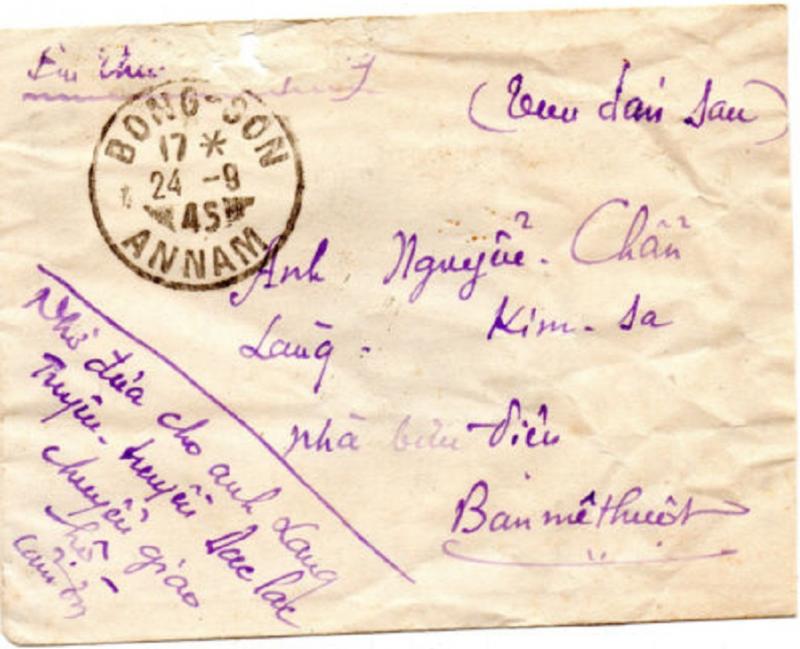 BONG-SON
17 *
24 -9
45
ANNAM
(tem dán sau)
Anh Nguyễn. Chẩn
Làng. Kim-sa
nhà bưu-điện
Banmêthuột
Nhờ đưa cho anh Lang
Truyện. truyện Daclac
chuyển giao
hộ -
cám ơn